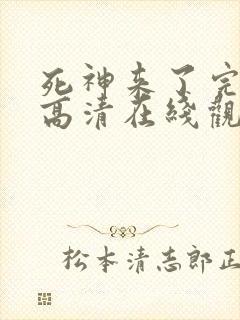 死神来了完
高清在綫觀
松本清志郎正